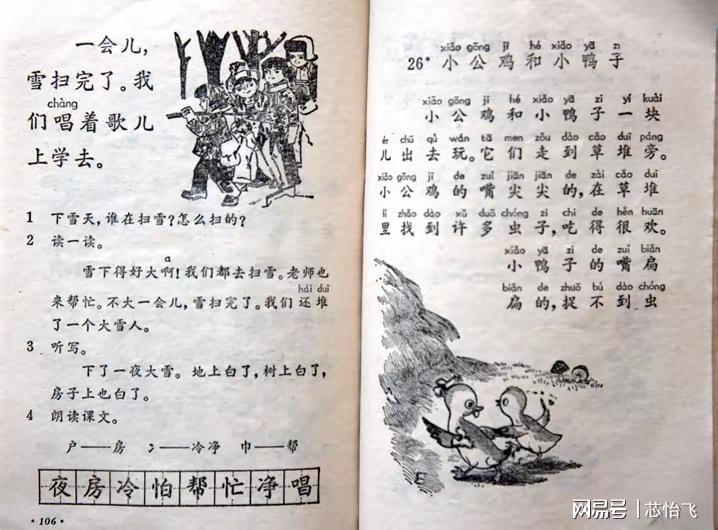 一会儿，
雪扫完了。我
chàng
们唱着歌儿
上学去。
1 下雪天，谁在扫雪？怎么扫的？
2 读一读。
a
雪下得好大啊！我们都去扫雪。老师也
hái duī
来帮忙。不大一会儿，雪扫完了。我们还堆
了一个大雪人。
3 听写。
下了一夜大雪。地上白了，树上白了，
房子上也白了。
4 朗读课文。
户——房 冫——冷净 巾——帮
夜房冷怕帮忙净唱
·106·
xiǎo gōng jī hé xiǎo yā zi
26* 小公鸡和小鸭子
xiǎo gōng jī hé xiǎo yā zi yí kuài
小公鸡和小鸭子一块
ér chū qù wán tā men zǒu dào cǎo duī páng
儿出去玩。它们走到草堆旁。
xiǎo gōng jī de zuǐ jiān jiān de zài cǎo duī
小公鸡的嘴尖尖的，在草堆
lǐ zhǎo dào xǔ duō chóng zi chī de hěn huān
里找到许多虫子，吃得很欢。
xiǎo yā zi de zuǐ biǎn
小鸭子的嘴扁
biǎn de zhuō bú dào chóng
扁的，捉不到虫
网易号 / 芯怡飞